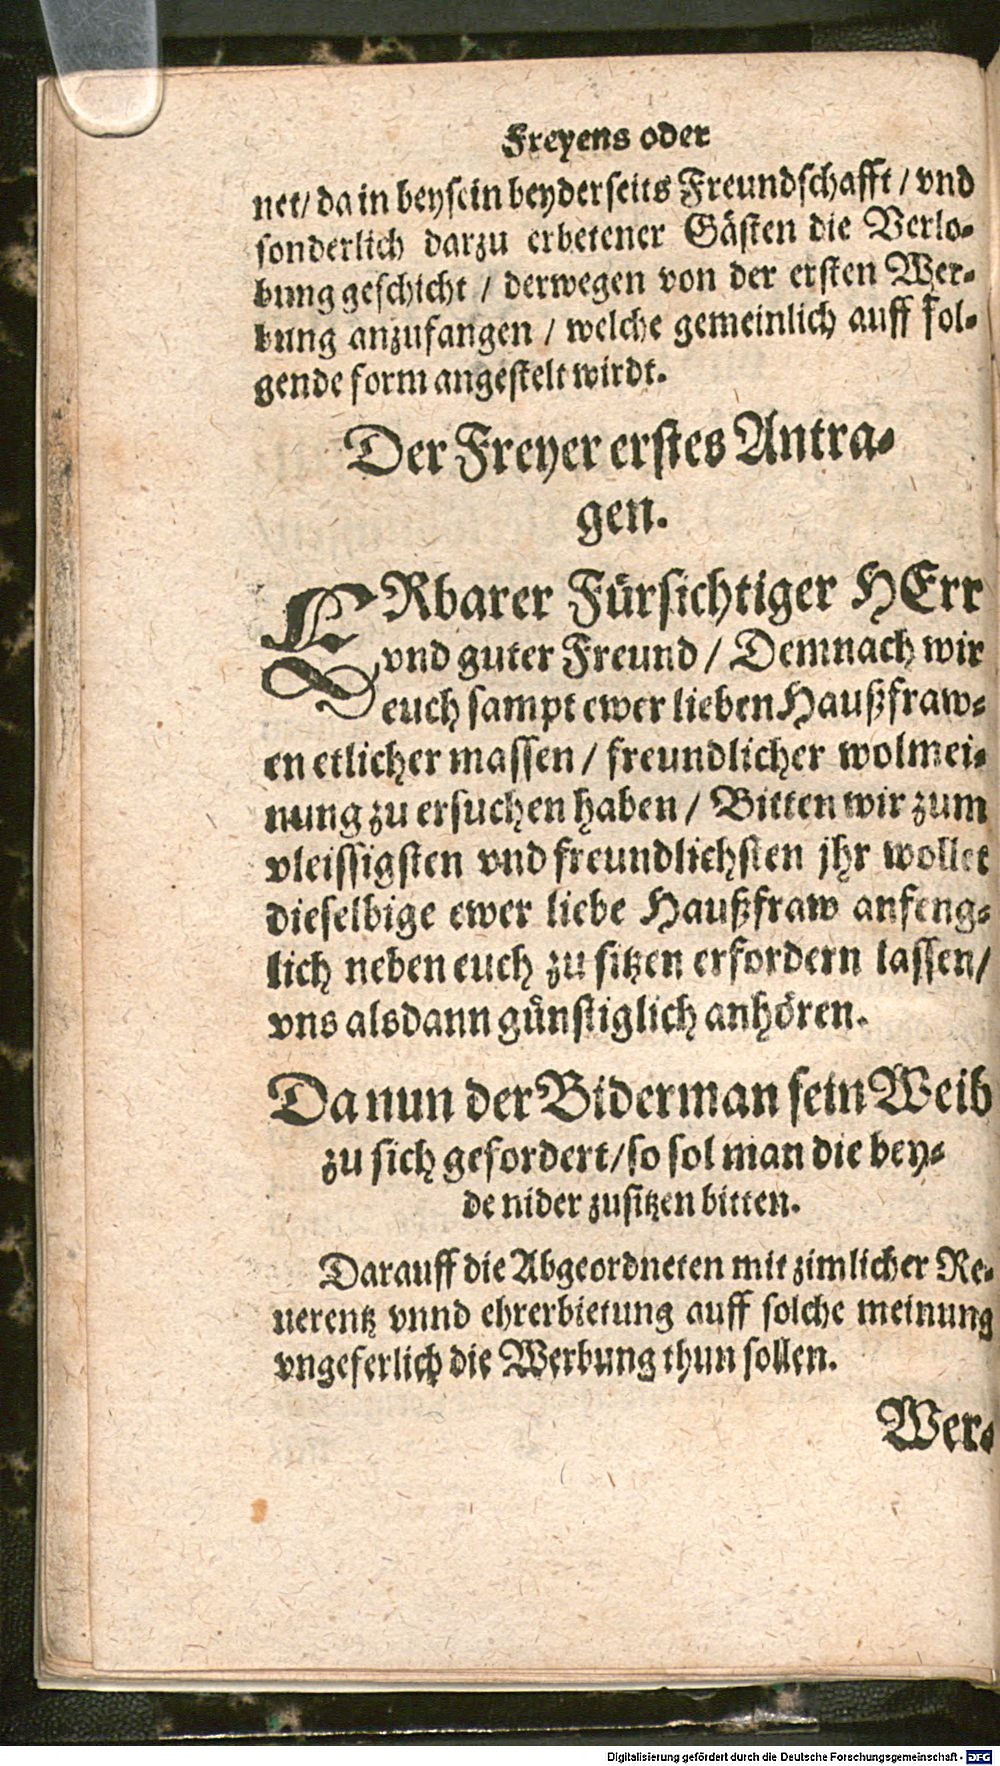 Freyens oder
net/ da in beysein beyderseits Freundschafft / vnd
sonderlich darzu erbetener Gästen die Verlo-
bung geschicht / derwegen von der ersten Wer-
bung anzufangen / welche gemeinlich auff fol-
gende form angestelt wirdt.
Der Freyer erstes Antra-
gen.
ERbarer Fürsichtiger HErr
vnd guter Freund / Demnach wir
euch sampt ewer lieben Haußfraw-
en etlicher massen / freundlicher wolmei-
nung zu ersuchen haben / Bitten wir zum
vleissigsten vnd freundlichsten jhr wollet
dieselbige ewer liebe Haußfraw anfeng-
lich neben euch zu sitzen erfordern lassen/
vns alsdann günstiglich anhören.
Da nun der Biderman sein Weib
zu sich gefordert/so sol man die bey-
de nider zusitzen bitten.
Darauff die Abgeordneten mit zimlicher Re-
uerentz vnnd ehrerbietung auff solche meinung
vngeferlich die Werbung thun sollen.
Wer-
Digitalisierung gefördert durch die Deutsche Forschungsgemeinschaft - DFG